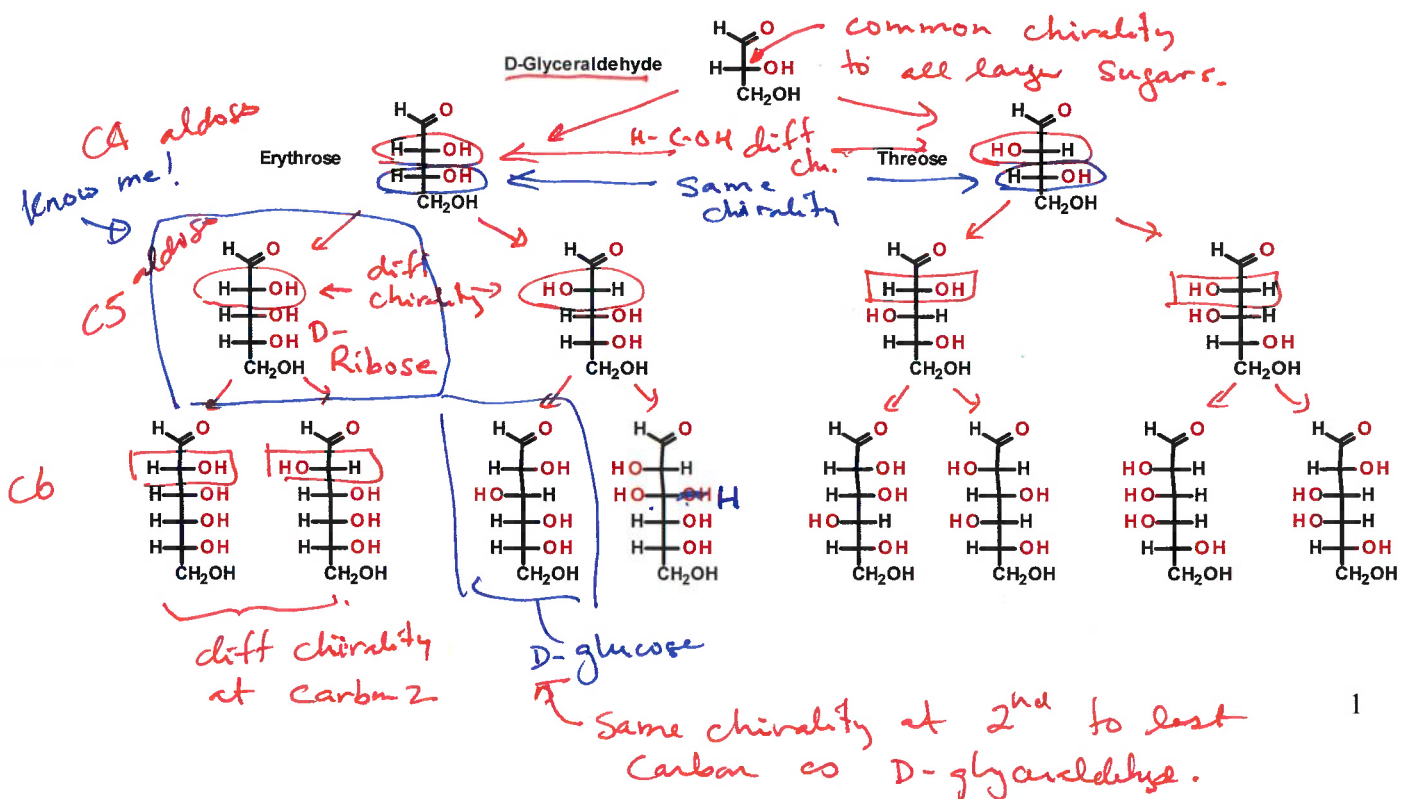 H O
common chirality
D-Glyceraldehyde
H OH
to all larger sugars.
CH₂OH
C4 aldoses
Know me!
Erythrose
H O
H OH
H OH
CH₂OH
H-C-OH diff
ch.
Same
chirality
Threose
H O
HO H
H OH
CH₂OH
C5 aldoses
H O
H OH
H OH
H OH
CH₂OH
D-
Ribose
diff
chirality
H O
HO H
H OH
H OH
CH₂OH
H O
H OH
HO H
H OH
CH₂OH
H O
HO H
HO H
H OH
CH₂OH
C6
H O
H OH
H OH
H OH
H OH
CH₂OH
H O
HO H
H OH
H OH
H OH
CH₂OH
H O
H OH
HO H
H OH
H OH
CH₂OH
H O
HO H
HO H
H OH
H OH
CH₂OH
H O
H OH
H OH
HO H
H OH
CH₂OH
H O
HO H
H OH
HO H
H OH
CH₂OH
H O
H OH
HO H
HO H
H OH
CH₂OH
H O
HO H
HO H
HO H
H OH
CH₂OH
diff chirality
at carbon 2
D-glucose
Same chirality at 2nd to last
Carbon as D-glyceraldehyde.
1